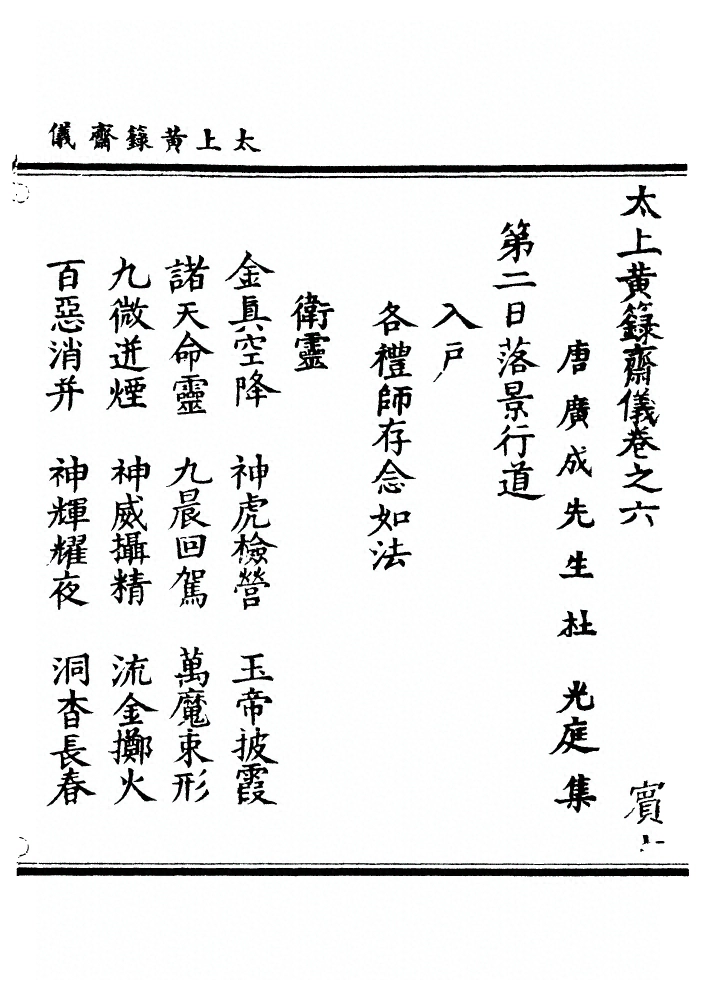 太上黃籙齋儀
太上黃籙齋儀卷之六
賓
唐廣成先生杜光庭集
第二日落景行道
入戶
各禮師存念如法
衛靈
金眞空降 神虎檢營 玉帝披霞
諸天命靈 九晨回駕 萬魔束形
九微迸煙 神威攝精 流金擲火
百惡消并 神輝耀夜 洞杳長春